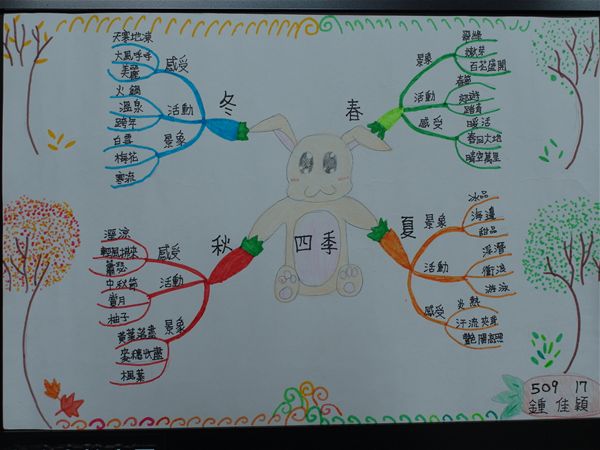 四季
春
景象
翠綠
嫩芽
百花盛開
活動
春節
踏青
感受
暖活
春回大地
晴空萬里
夏
景象
冰品
海邊
甜品
活動
浮潛
衝浪
游泳
感受
炎熱
汗流夾背
艷陽高照
秋
感受
淒涼
輕風拂來
蕭瑟
活動
中秋節
賞月
柚子
景象
黃葉落盡
麥穗收盡
楓葉
冬
感受
天寒地凍
大風呼呼
美麗
活動
火鍋
溫泉
跨年
景象
白雪
梅花
寒流
509 17
鍾佳穎